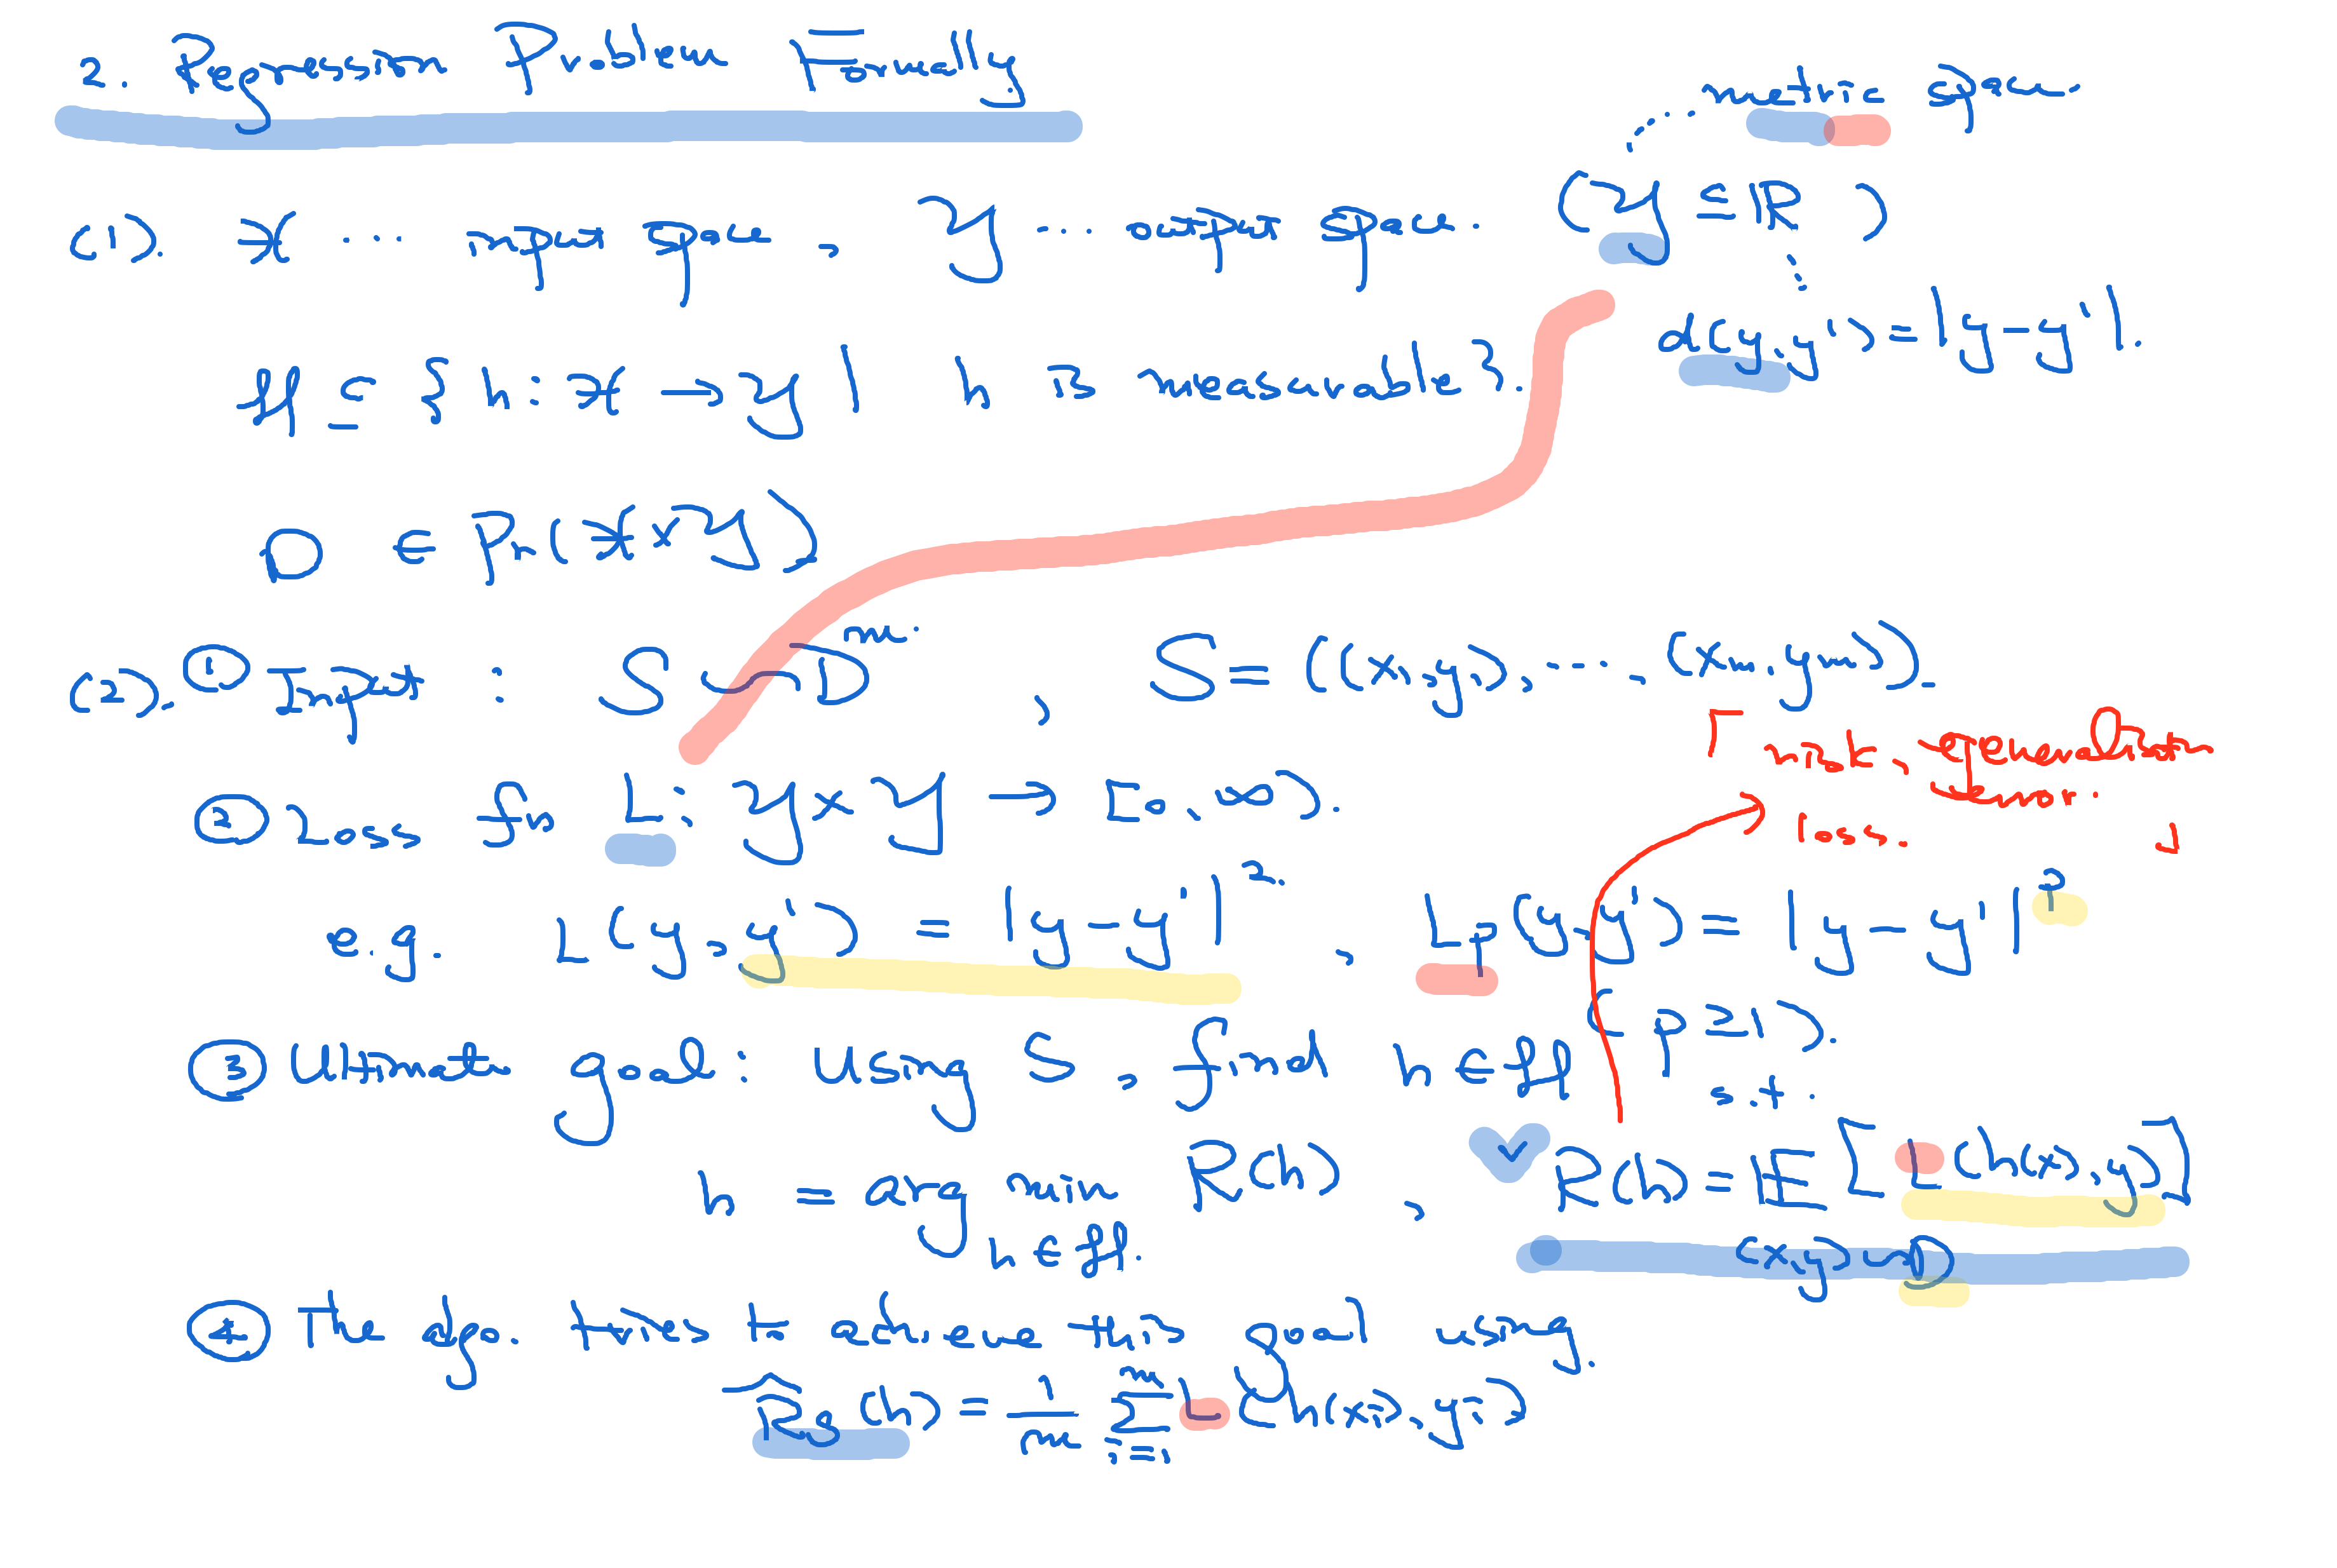 2. Regression Problem Formally
metric space.
(1). 𝒳 ... input space, 𝒴 ... output space. (𝒴 ⊆ ℝ)
d(y,y') = |y-y'|.
ℋ ⊆ {h : 𝒳 → 𝒴 | h is measurable}.
D ∈ Pr(𝒳×𝒴)
(2). ① Input : S ~ D^m. , S = ((x₁,y₁), ...., (xₘ,yₘ)).
② Loss fn L : 𝒴×𝒴 → [0,∞).
「 risk, generalisation error.
loss. 」
e.g. L(y,y') = |y-y'|². , L_p(y,y') = |y-y'|^p
(p≥1).
③ Ultimate goal : Using S, find h∈ℋ s.t.
h = argmin R(h) , R(h) = 𝔼 [L(h(x),y)]
h∈ℋ. (x,y)~D
④ The algo. tries to achieve this goal using.
R̂_S(h) = 1/m Σ_{i=1}^m L(h(xᵢ),yᵢ)